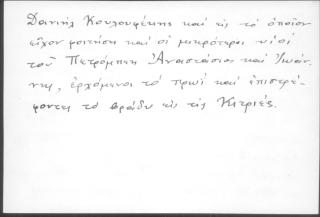 Δανιήλ Κουλουφέκης καί εἰς τό ὁποῖον
εἶχον φοιτήσῃ καί οἱ μικρότεροι υἱοί
τοῦ Πετρόμπεη Ἀναστάσιος καί Ἰωάν-
νης, ἐρχόμενοι τό πρωί καί ἐπιστρέ-
φοντες τό βράδυ εἰς τίς Κιτριές.